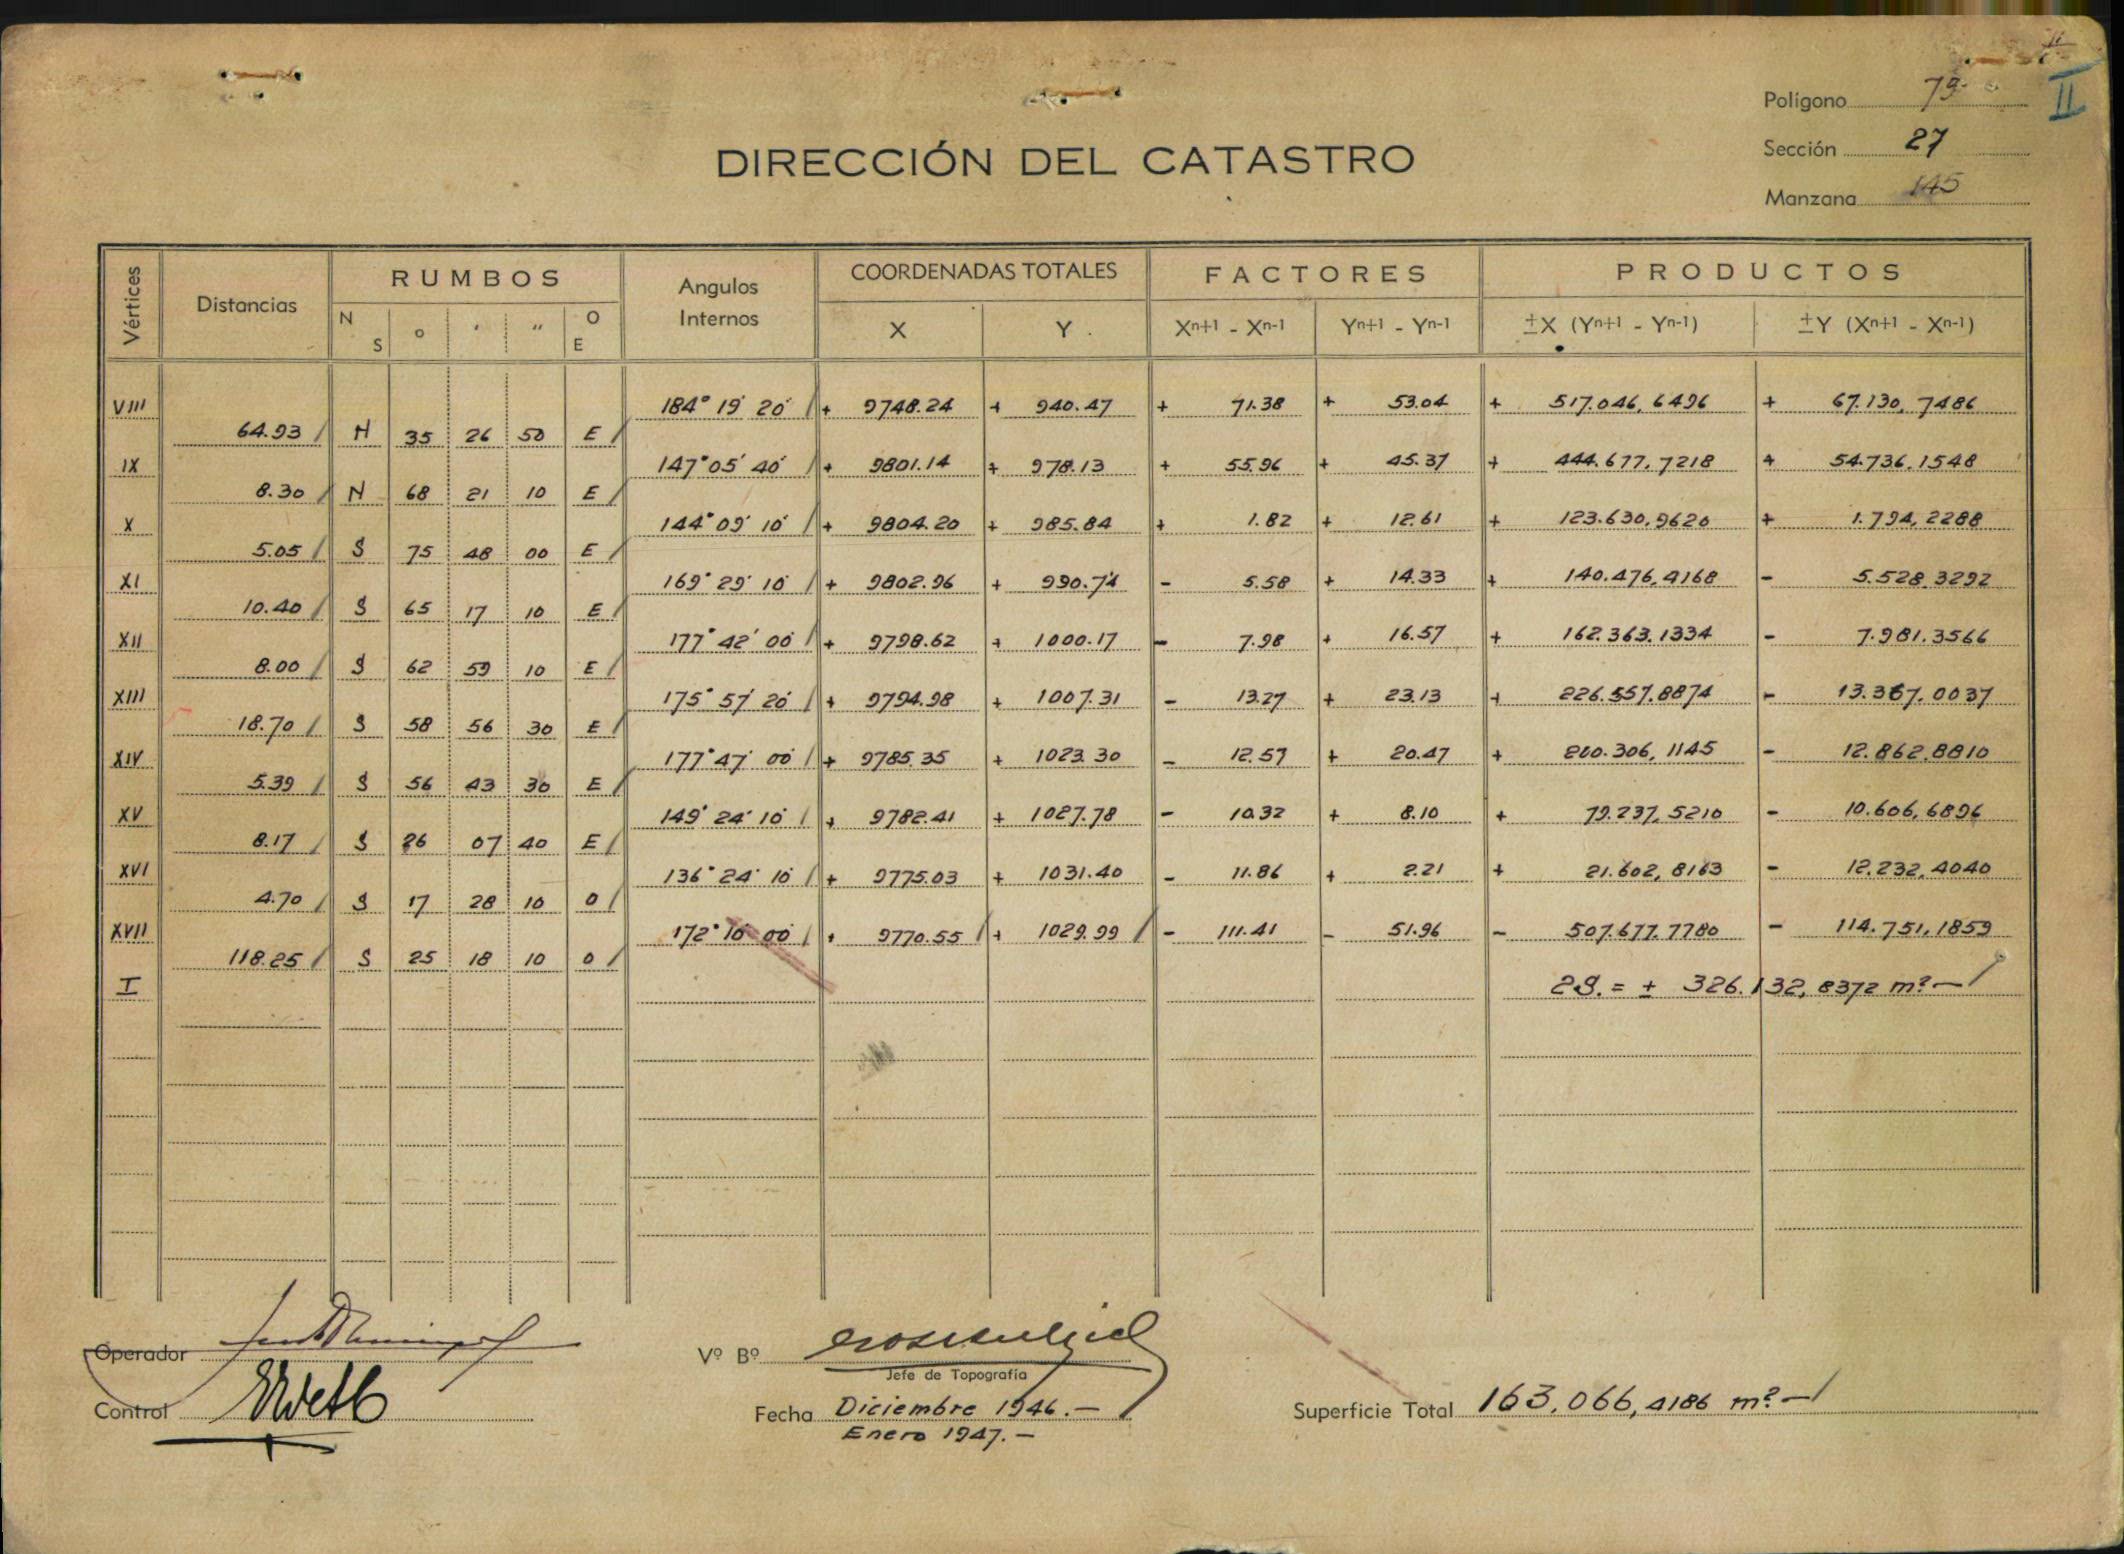 II
Polígono 79
DIRECCIÓN DEL CATASTRO
Sección 27
Manzana 145
Vértices Distancias RUMBOS Angulos Internos COORDENADAS TOTALES FACTORES PRODUCTOS
N S ° ' " O E X Y Xn+1 - Xn-1 Yn+1 - Yn-1 ±X (Yn+1 - Yn-1) ±Y (Xn+1 - Xn-1)
VIII 184° 19' 20" + 9748.24 + 940.47 + 71.38 + 53.04 + 517.046,6496 + 67.130,7486
64.93 N 35 26 50 E
IX 147° 05' 40" + 9801.14 + 978.13 + 55.96 + 45.37 + 444.677,7218 + 54.736,1548
8.30 N 68 21 10 E
X 144° 09' 10" + 9804.20 + 985.84 + 1.82 + 12.61 + 123.630,9620 + 1.794,2288
5.05 S 75 48 00 E
XI 169° 29' 10" + 9802.96 + 990.74 - 5.58 + 14.33 + 140.476,4168 - 5.528,3292
10.40 S 65 17 10 E
XII 177° 42' 00" + 9798.62 + 1000.17 - 7.98 + 16.57 + 162.363,1334 - 7.981,3566
8.00 S 62 59 10 E
XIII 175° 57' 20" + 9794.98 + 1007.31 - 13.27 + 23.13 + 226.557,8874 - 13.367,0037
18.70 S 58 56 30 E
XIV 177° 47' 00" + 9785.35 + 1023.30 - 12.57 + 20.47 + 200.306,1145 - 12.862,8810
5.39 S 56 43 30 E
XV 149° 24' 10" + 9782.41 + 1027.78 - 10.32 + 8.10 + 79.237,5210 - 10.606,6896
8.17 S 26 07 40 E
XVI 136° 24' 10" + 9775.03 + 1031.40 - 11.86 + 2.21 + 21.602,8163 - 12.232,4040
4.70 S 17 28 10 O
XVII 172° 10' 00" + 9770.55 + 1029.99 - 111.41 - 51.96 - 507.677,7780 - 114.751,1859
118.25 S 25 18 10 O
I 2S. = ± 326.132,8372 m².-
Operador
Vº Bº
Jefe de Topografía
Control
Fecha Diciembre 1946.-
Enero 1947.-
Superficie Total 163,066,4186 m².-